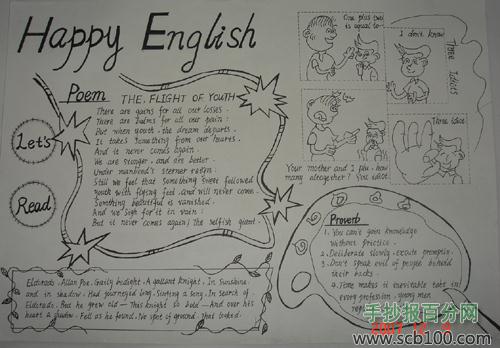 Happy English
Let's
Read
Poem
THE FLIGHT OF YOUTH
There are gains for all our losses.
There are balms for all our pain:
But when youth the dream departs
It takes something from our hearts.
And it never comes again.
We are stronger and are better.
Under manhood's sterner reign:
Still we feel that something sweet followed
Youth with flying feet and will never come.
Something beautiful is vanished.
And we sigh for it in vain:
But it never comes again! The selfish giant.
One plus two
is equal to
I don't know
Three Idiots
Your mother and I you, how
many altogether? You idiot
Three idiot
Proverb
1. You can't gain knowledge
without practice.
2. Deliberate slowly, excute promptly.
3. Don't speak evil of people behind
their backs.
4. Time makes it inevitable that in
every profession, young men
Eldorado. Allan Poe. Gaily bedight. A gallant knight. In Sunshine
and in shadow. Had journeyed long. Singing a song. In search of
Eldorado. But he grew old — This knight so bold — And over his
heart a shadow. Fell as he found. No spot of ground. That looked.
手抄报百分网
www.scb100.com